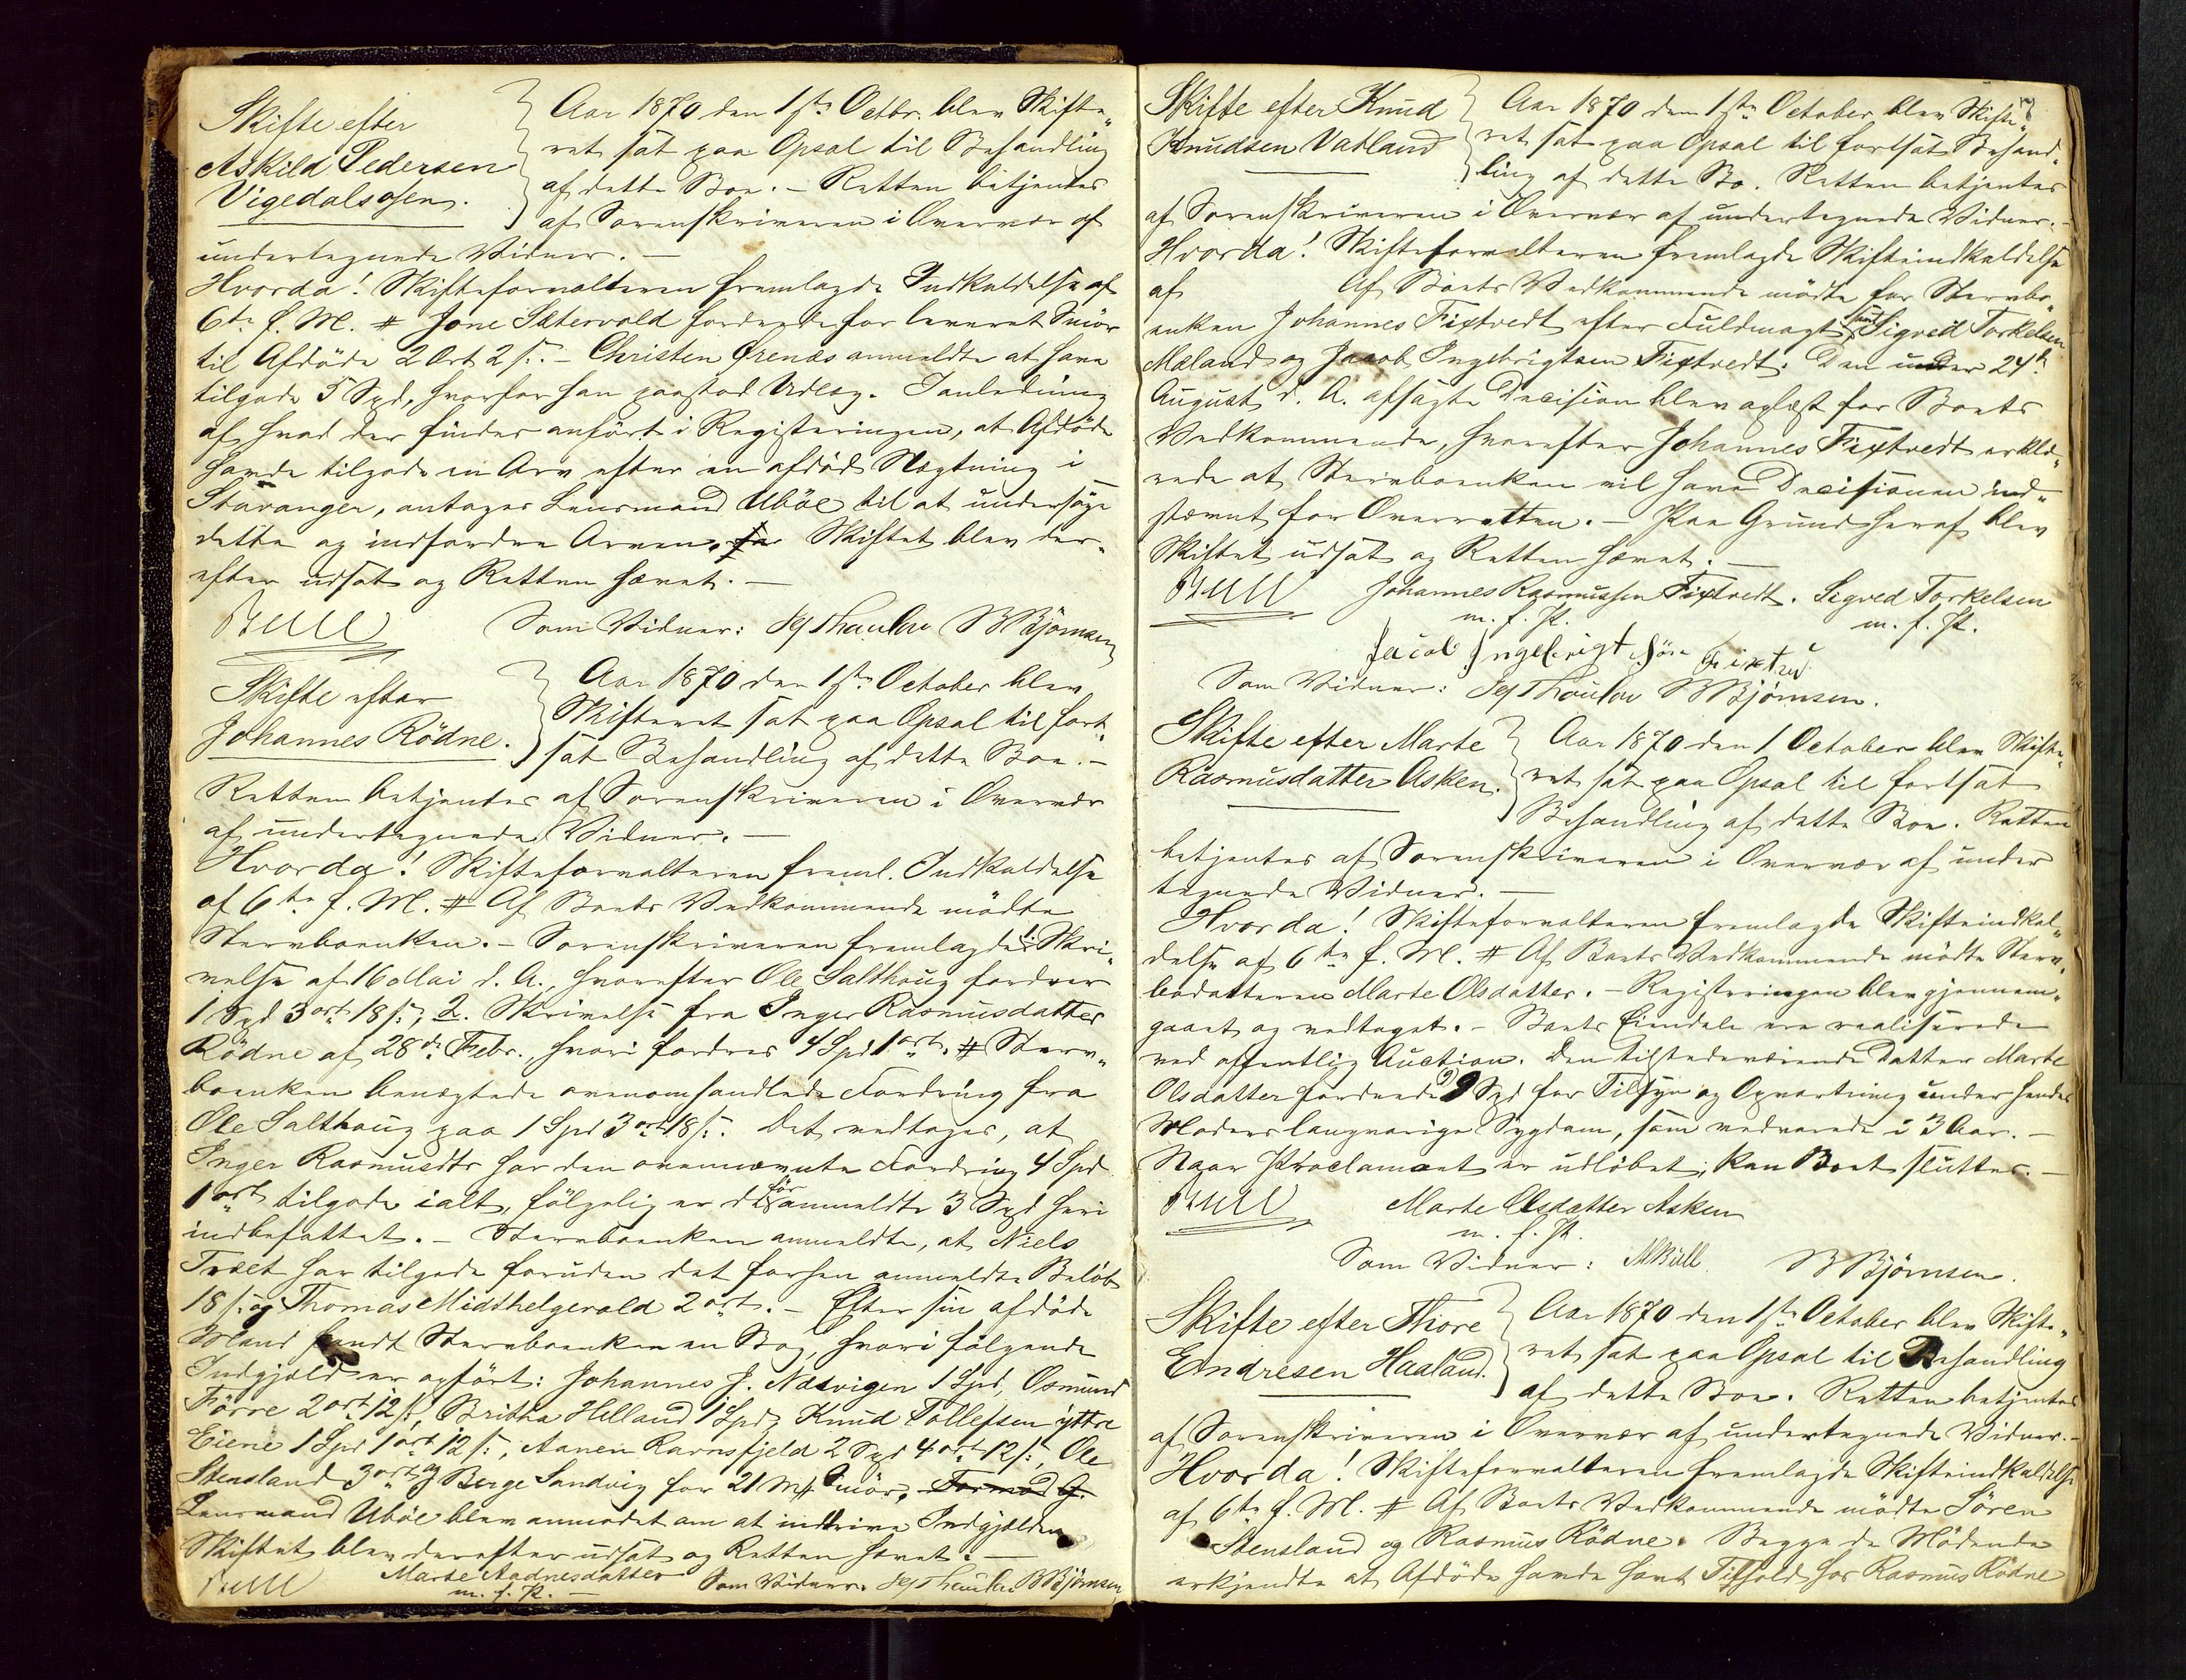 Skifte efter
Askild Pedersen
Vigedalsosen.
Aar 1870 den 1ste Octbr. blev Skifte„
ret sat paa Opsal til Behandling
af dette Boe. – Retten betjentes
af Sorenskriveren i Overvær af
undertegnede Vidner. –
Hvorda! Skifteforvalteren fremlagde Indkaldelse af
6te f. M. # Jone Sætervold fordrede for leveret Smör
til Afdöde 2 Ort 2 s. – Christen Ørenæs anmeldte at have
tilgode 5 Spd, hvorfor han paastod Udlæg. I Anledning
af hvad der findes anfört i Registeringen, at Afdöde
havde tilgode en Arv efter en afdöd Slægtning i
Stavanger, antages Lensmand Uböe til at undersöge
dette og indfordre Arven. Skiftet blev der„
efter udsat og Retten hævet. –
Bull
Som Vidner: Thaulow B Björnsen
Skifte efter
Johannes Rödne.
Aar 1870 den 1ste October blev
Skifteret sat paa Opsal til fort„
sat Behandling af dette Boe. –
Retten betjentes af Sorenskriveren i Overvær
af undertegnede Vidner. –
Hvorda! Skifteforvalteren freml. Indkaldelse
af 6te f. M. # Af Boets Vedkommende mödte
Stervboenken. – Sorenskriveren fremlagde 1. Skri„
velse af 16 Mai d. A., hvorefter Ole Salthoug fordrer
1 Spd 3 ort 18 s, 2. Skrivelse fra Inger Rasmusdatter
Rödne af 28de Febr., hvori fordres 4 Spd 1 ort. # Sterv„
boenken benægtede ovenomhandlede Fordring fra
Ole Salthoug paa 1 Spd 3 ort 18 s. Det vedtages, at
Inger Rasmusdtr har den ovennævnte Fordring 4 Spd
1 ort tilgode ialt, fölgelig er de för anmeldte 3 Spd heri
indbefattet. – Stervboenken anmeldte, at Niels
Træet har tilgode foruden det forhen anmeldte Belöb
18 s. og Thomas Midthelgevold 2 ort. – Efter sin afdöde
Mand fandt Stervboenken en Bog, hvori fölgende
Indgjæld er opfört: Johannes J. Næsvigen 1 Spd, Osmund
Förre 2 ort 12 s, Britha Helland 1 Spd, Knud Tollefsen yttre
Eiene 1 Spd 1 ort 12 s., Aanen Ravnsfjeld 2 Spd 4 ort 12 s, Ole
Stensland 3 ort og Berge Sandvig for 21 Mk Smör.
Lensmand Uböe blev anmodet om at inddrive Indgjælden
Skiftet blev derefter udsat og Retten hævet. –
Bull Marte Aadnesdatter Som Vidner: Thaulow B Björnsen
m. f. P. –
Skifte efter Knud
Knudsen Vatland
Aar 1870 den 1ste October blev Skifte„
ret sat paa Opsal til fortsat Behand„
ling af dette Bo. Retten betjentes
af Sorenskriveren i Overvær af undertegnede Vidner. –
Hvorda! Skifteforvalteren fremlagde Skifteindkaldelse
af Af Boets Vedkommende mödte for Stervbo„
enken Johannes Fixtvedt efter Fuldmagt, samt Sigved Torkelsen
Mæland og Jacob Ingebrigtsen Fixtvedt. Den under 24de
August d. A. afsagte Decision blev oplæst for Boets
Vedkommende, hvorefter Johannes Fixtvedt erklæ„
rede at Stervboenken vil have Decisionen ind„
stævnt for Overretten. – Paa Grund heraf blev
Skiftet udsat og Retten hævet. –
Bull Johannes Rasmussen Fixtvedt. Sigved Torkelsen
m. f. P. m. f. P.
Jacob Ingebrigt Sön Fixtved
Som Vidner: Thaulow B Björnsen.
Skifte efter Marte
Rasmusdatter Asken.
Aar 1870 den 1 October blev Skifte„
ret sat paa Opsal til fortsat
Behandling af dette Boe. Retten
betjentes af Sorenskriveren i Overvær af under
tegnede Vidner. –
Hvorda! Skifteforvalteren fremlagde Skifteindkal„
delse af 6te f. M. # Af Boets Vedkommende mödte Sterv„
bodatteren Marte Olsdatter. – Registeringen blev gjennem„
gaaet og vedtaget. – Boets Eiendele ere realiserede
ved offentlig Auction. Den tilstedeværende Datter Marte
Olsdatter fordrede 9) 9 Spd for Tilsyn og Opvartning under hendes
Moders langvarige Sygdom, som vedvarede i 3 Aar. –
Naar Proclamaet er udlöbet, kan Boet sluttes. –
Bull Marte Olsdatter Asken
m. f. P.
Som Vidner: MBull B Björnsen.
Skifte efter Thore
Endresen Haaland.
Aar 1870 den 1ste October blev Skifte„
ret sat paa Opsal til Behandling
af dette Boe. Retten betjentes
af Sorenskriveren i Overvær af undertegnede Vidner. –
Hvorda! Skifteforvalteren fremlagde Skifteindkaldelse
af 6te f. M. # Af Boets Vedkommende mödte Sören
Stensland og Rasmus Rödne. Begge de Mödende
erkjendte at Afdöde havde havt Tilhold hos Rasmus Rödne